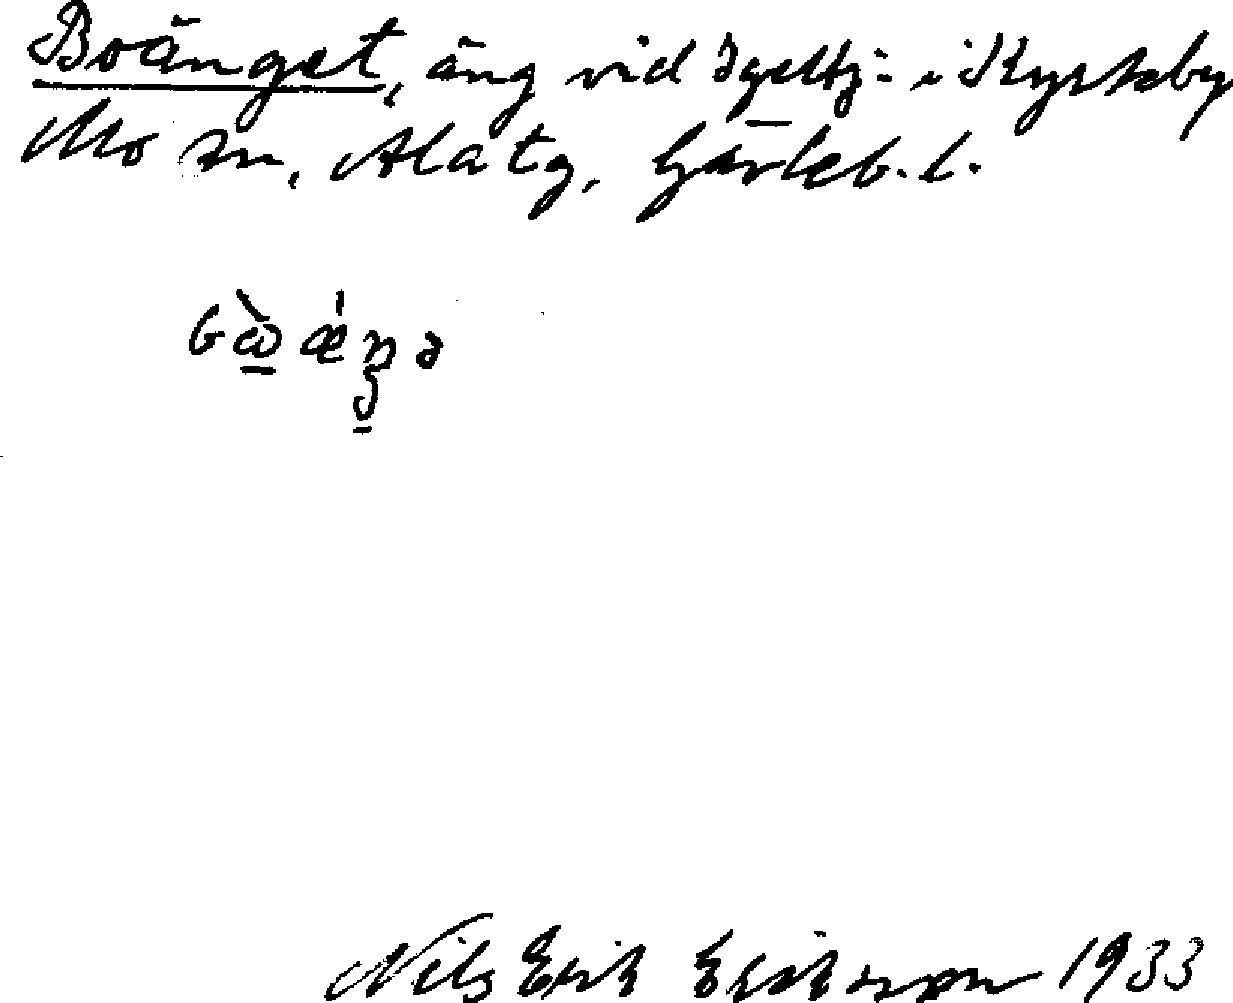 Boänget, äng vid Igeltj: i Kyrkeby
Mo sn, Ala tg, Gävleb. l.
Nils Erik Eriksson 1933